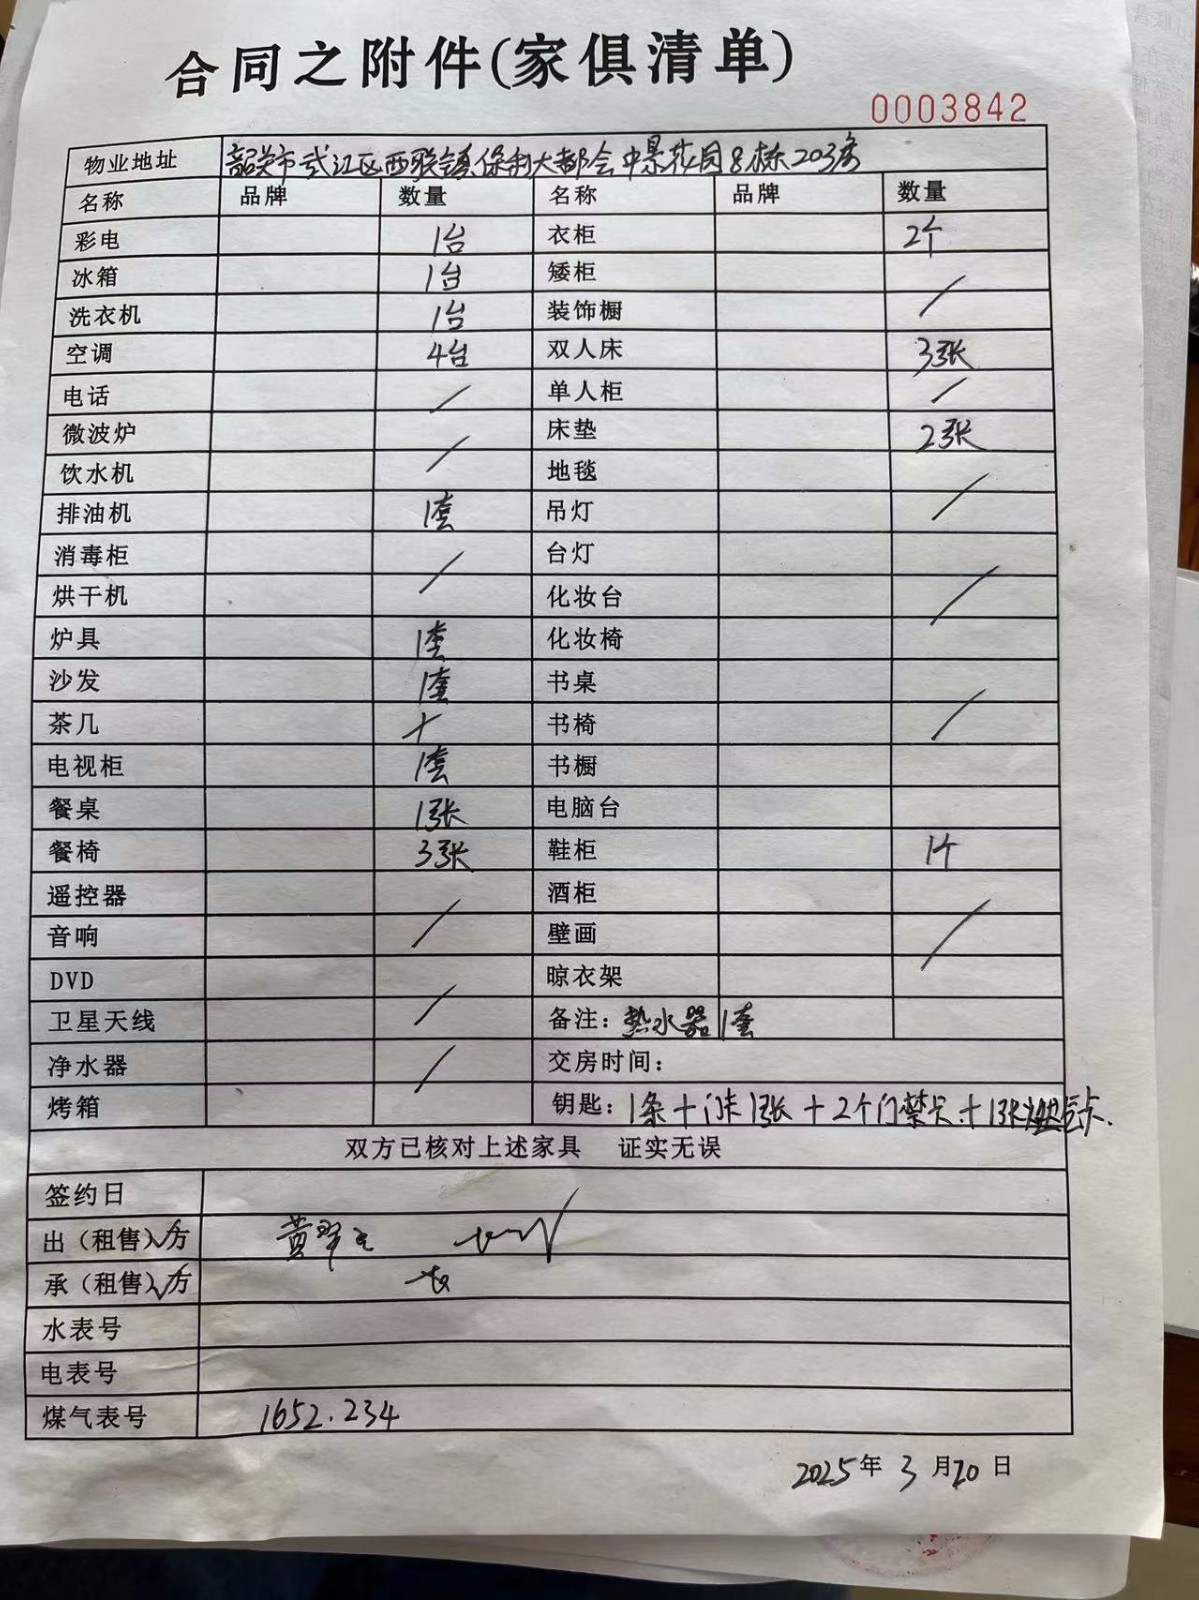 合同之附件(家俱清单)
0003842
物业地址 韶关市武江区西联镇保利大都会中景花园8栋203房
名称 品牌 数量 名称 品牌 数量
彩电 1台 衣柜 2个
冰箱 1台 矮柜
洗衣机 1台 装饰橱 /
空调 4台 双人床 3张
电话 / 单人柜 /
微波炉 床垫 2张
饮水机 / 地毯
排油机 1套 吊灯 /
消毒柜 台灯
烘干机 / 化妆台 /
炉具 1套 化妆椅
沙发 1套 书桌
茶几 书椅 /
电视柜 1套 书橱
餐桌 1张 电脑台
餐椅 3张 鞋柜 1个
遥控器 酒柜
音响 / 壁画 /
DVD 晾衣架
卫星天线 / 备注: 热水器1套
净水器 / 交房时间:
烤箱 钥匙: 1条+门卡1张+2个门禁卡+1张燃气卡.
双方已核对上述家具 证实无误
签约日
出(租售)方 黄
承(租售)方
水表号
电表号
煤气表号 1652.234
2025年3月20日